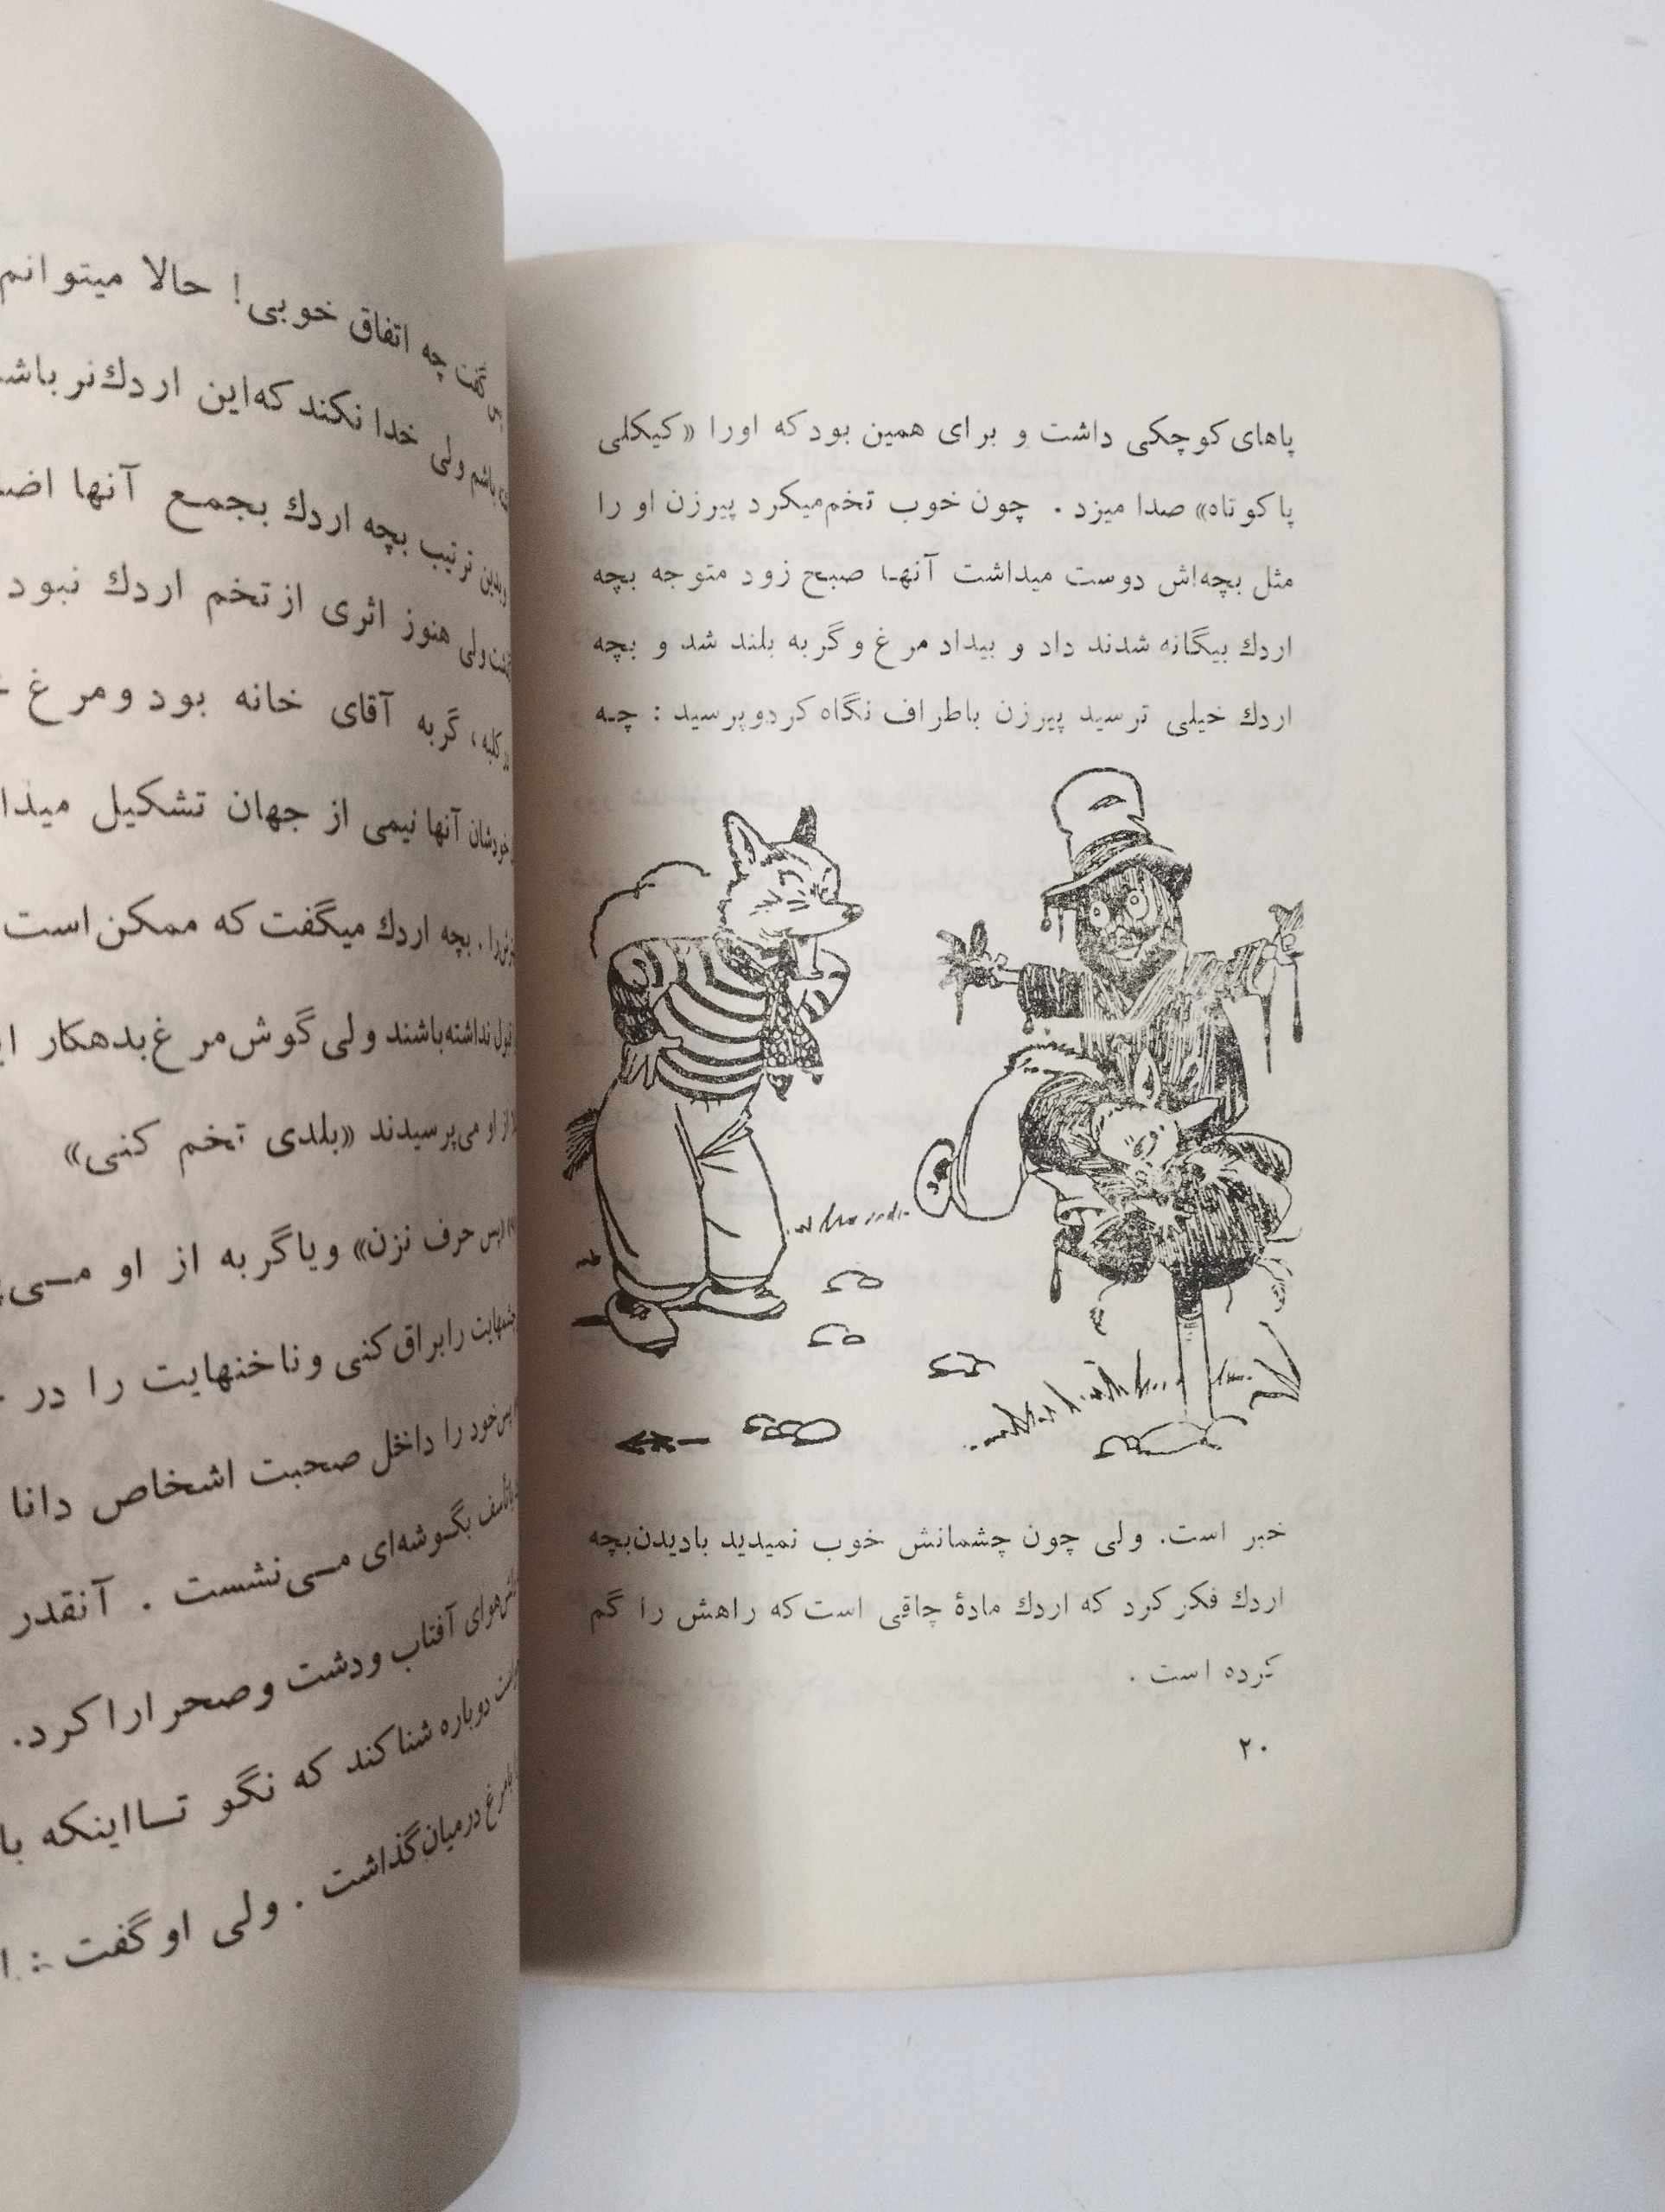 پاهای کوچکی داشت و برای همین بود که اورا «کیکلی
پا کوتاه» صدا میزد . چون خوب تخم‌میکرد پیرزن او را
مثل بچه‌اش دوست میداشت آنها صبح زود متوجه بچه
اردك بیگانه شدند داد و بیداد مرغ و گربه بلند شد و بچه
اردك خیلی ترسید پیرزن باطراف نگاه کردوپرسید : چه
خبر است. ولی چون چشمانش خوب نمیدید بادیدن‌بچه
اردك فکر کرد که اردك مادهٔ چاقی است که راهش را گم
کرده است .
۲۰
گفت چه اتفاق خوبی! حالا میتوانم
باشم ولی خدا نکند که‌این اردك‌نر باشد
ترتیب بچه اردك بجمع آنها
ولی هنوز اثری ازتخم اردك نبود
کلبه ، گربه آقای خانه بود ومرغ
خودشان آنها نیمی از جهان تشکیل
بچه اردك میگفت که ممکن است
نداشته‌باشند ولی گوش‌مرغ‌بدهکار
از او می‌پرسیدند «بلدی تخم کنی»
حرف نزن» ویاگربه از او
رابراق‌کنی وناخنهایت را در
خود را داخل صحبت اشخاص دانا
بگوشه‌ای مـی‌نشست . آنقدر
هوای آفتاب ودشت وصحرارا کرد.
دوباره شناکند که نگو تـااینکه
بامرغ درمیان‌گذاشت . ولی اوگفت :